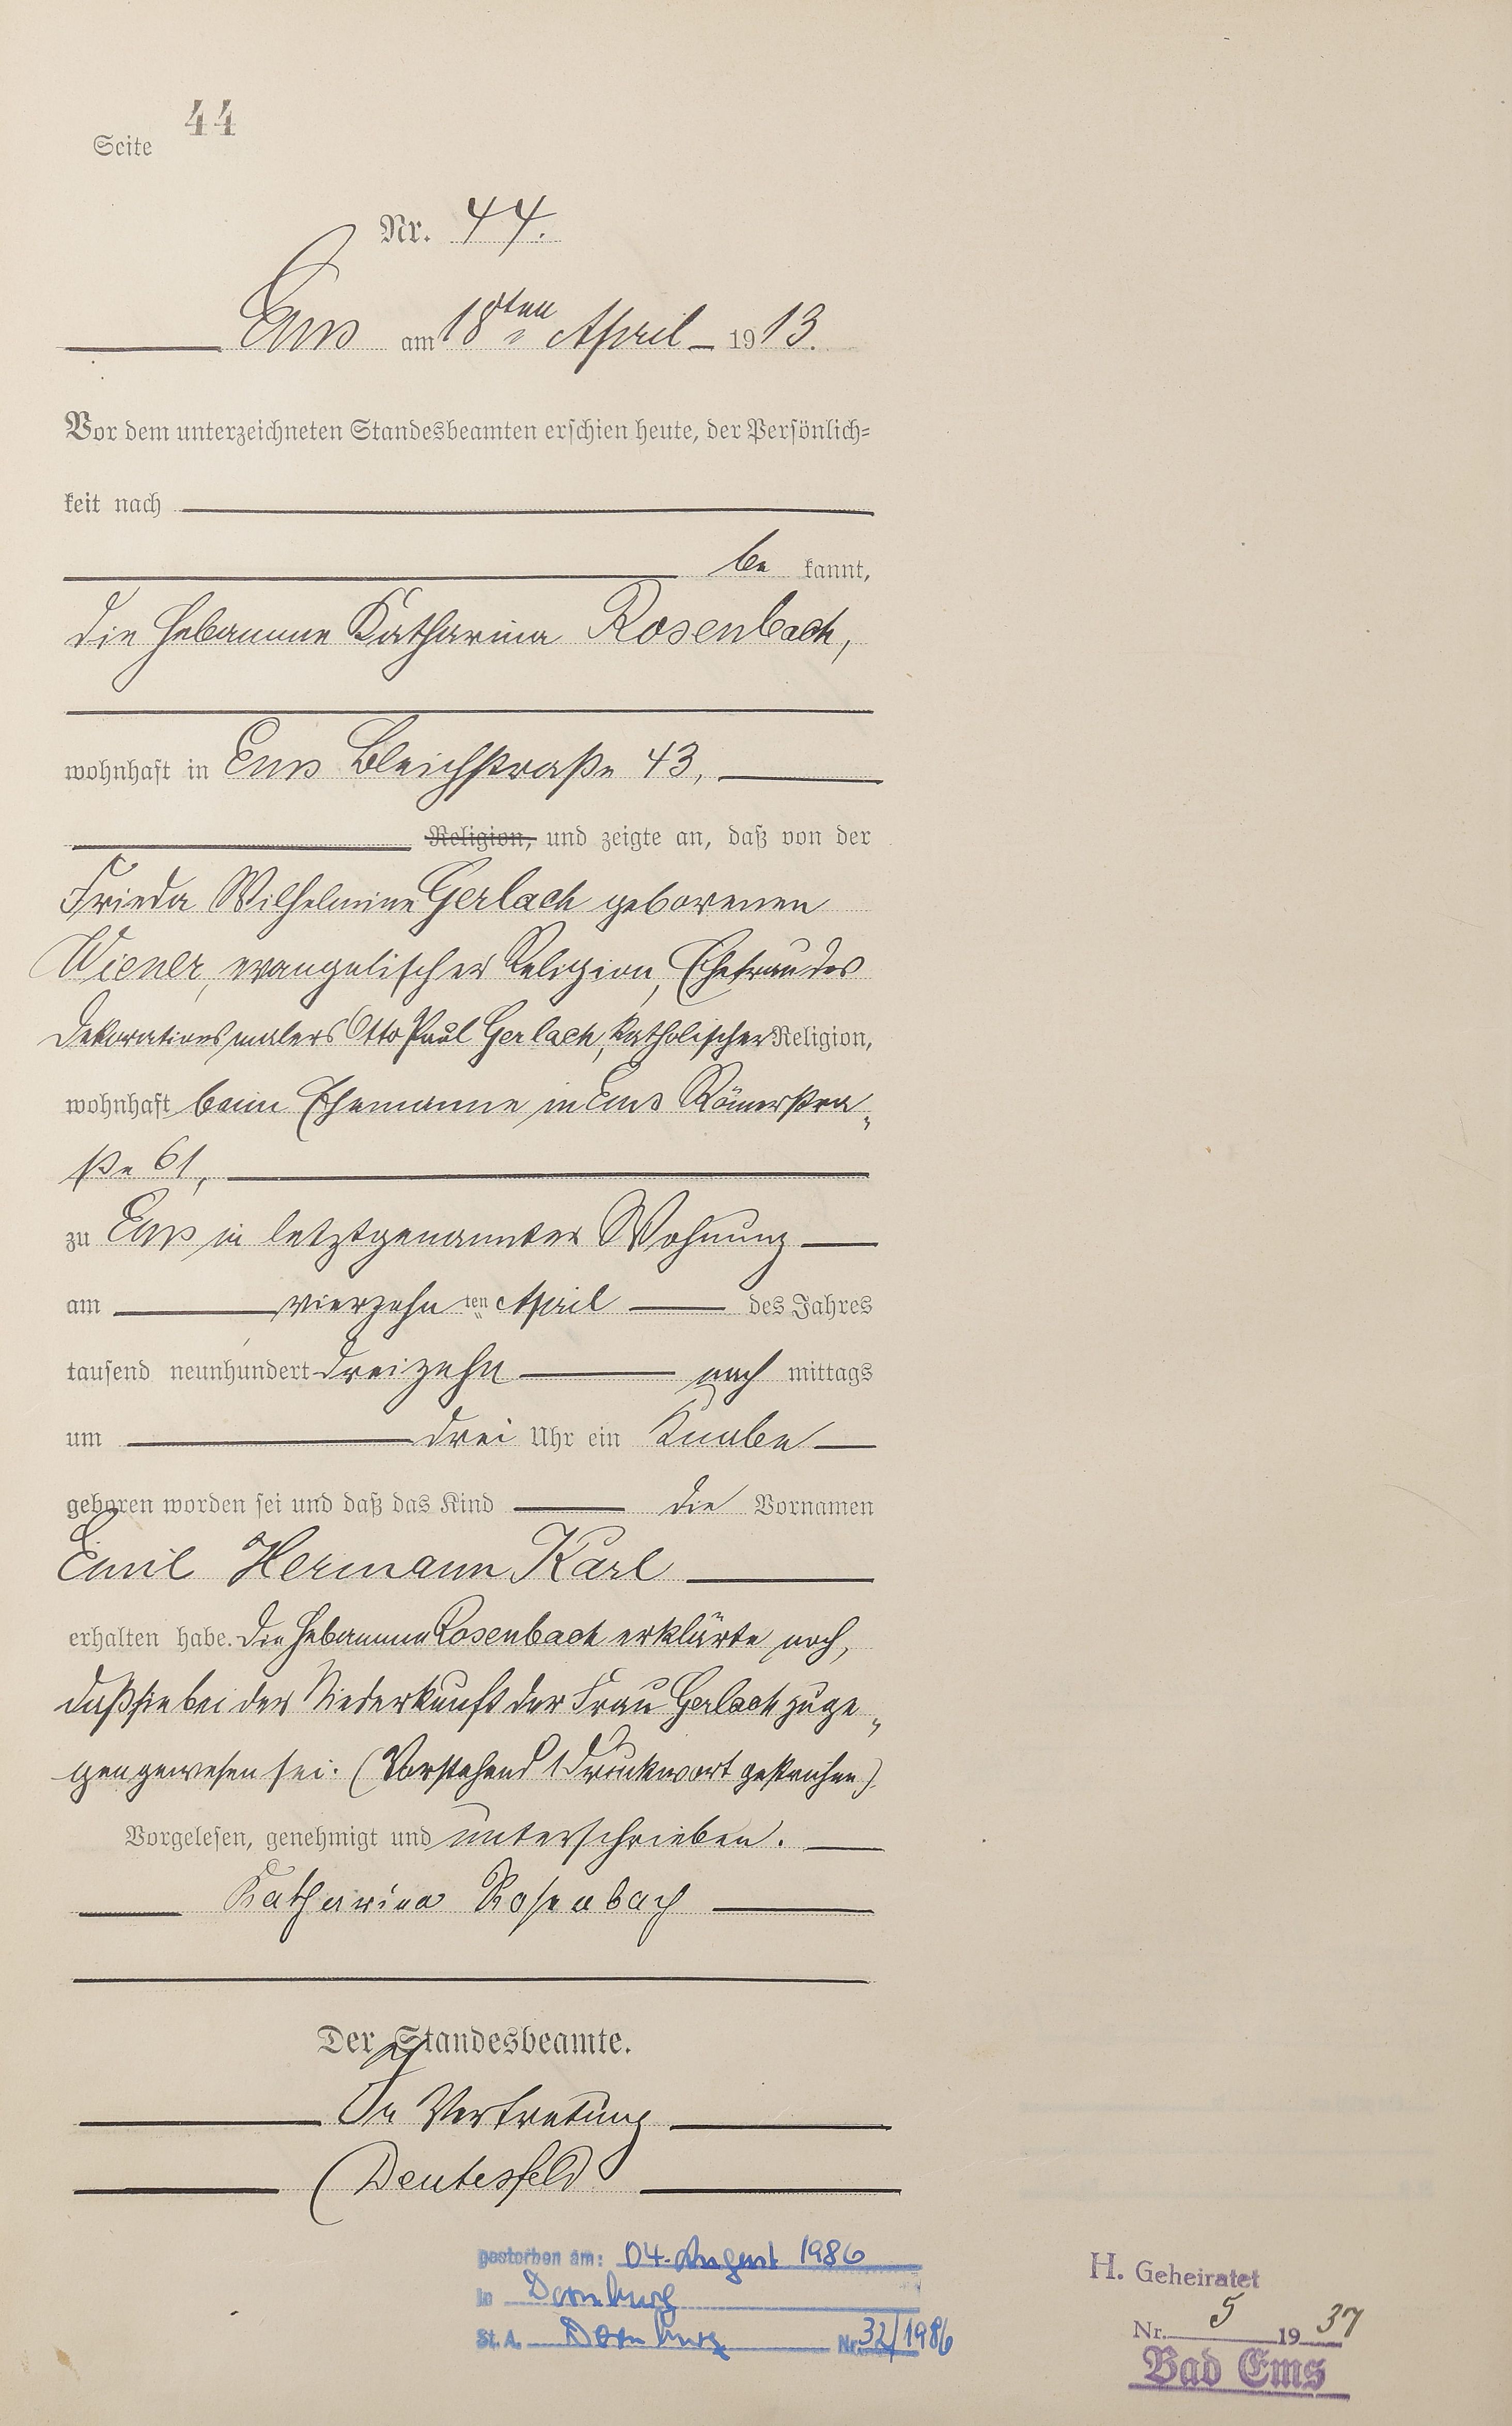 44
Seite
Nr. 44.
Ems am 18ten April 1913.
Vor dem unterzeichneten Standesbeamten erschien heute, der Persönlich=
keit nach
be kannt,
die Hebamme Katharina Rosenbach,
wohnhaft in Ems Bleichstraße 43,
Religion, und zeigte an, daß von der
Frieda Wilhelmine Gerlach geborenen
Wiener, evangelischer Religion, Ehefrau des
Dekorationsmalers Otto Paul Gerlach, katholischer Religion,
wohnhaft beim Ehemanne in Ems Römerstra„
ße 61,
zu Ems in letztgenannter Wohnung
am vierzehn ten April des Jahres
tausend neunhundert dreizehn nach mittags
um drei Uhr ein Knabe
geboren worden sei und daß das Kind die Vornamen
Emil Hermann Karl
erhalten habe. Die Hebamme Rosenbach erklärte noch,
daß sie bei der Niederkunft der Frau Gerlach zuge„
gen gewesen sei. (Vorstehend 1 Druckwort gestrichen).
Vorgelesen, genehmigt und unterschrieben.
Katharina Rosenbach
Der Standesbeamte.
In Vertretung
Deutesfeld
gestorben am: 04. August 1986
in Dornburg
St. A. Dornburg Nr. 32/1986
H. Geheiratet
Nr. 5 1937
Bad Ems